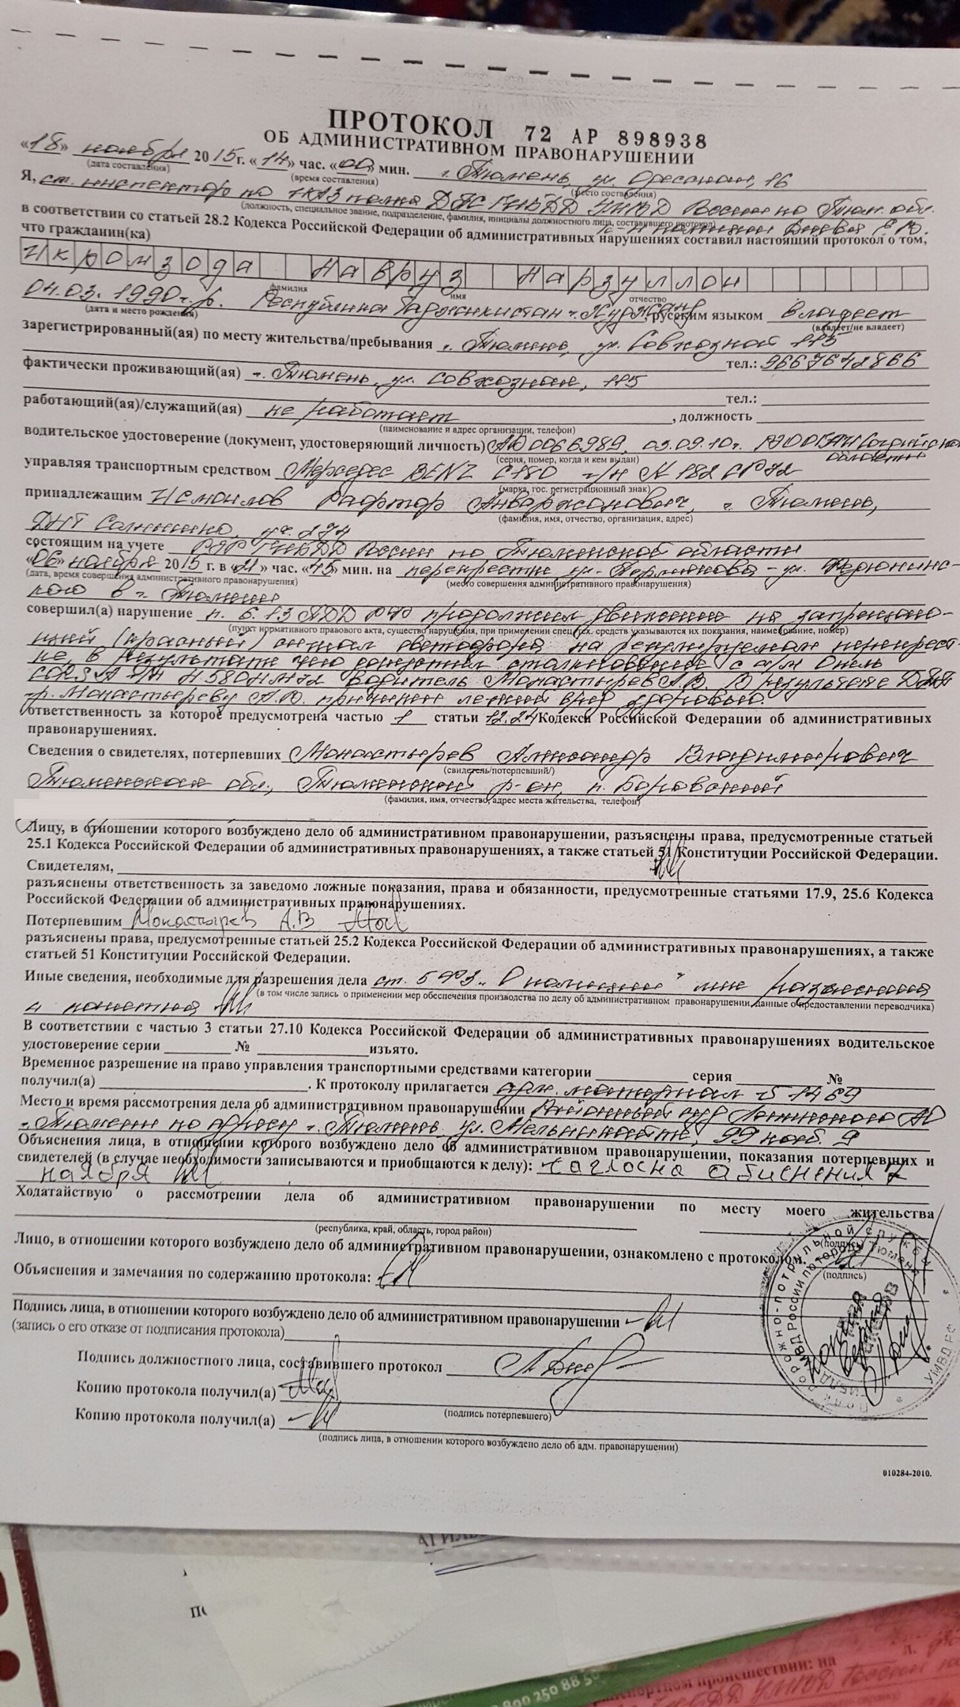 ПРОТОКОЛ 72 АР 898938
ОБ АДМИНИСТРАТИВНОМ ПРАВОНАРУШЕНИИ
«18» ноября 2015г. «14» час. «00» мин. г. Тюмень, ул.
(дата составления) (время составления) (место составления)
Я, ст. инспектор по ИАЗ полка ДПС ГИБДД УМВД России по Тюм. обл.
(должность, специальное звание, подразделение, фамилия, инициалы должностного лица, составившего протокол)
в соответствии со статьей 28.2 Кодекса Российской Федерации об административных нарушениях составил настоящий протокол о том,
что гражданин(ка)
Икромзода Навруз Нарзуллои
фамилия имя отчество
04.03.1990г.р. Республика Таджикистан русским языком владеет
(дата и место рождения) (владеет/не владеет)
зарегистрированный(ая) по месту жительства/пребывания г. Тюмень, ул. Совхозная
тел.: 9667672866
фактически проживающий(ая) г. Тюмень, ул. Совхозная,
тел.:
работающий(ая)/служащий(ая) не работает, должность
(наименование и адрес организации, телефон)
водительское удостоверение (документ, удостоверяющий личность) 03.09.10г.
(серия, номер, когда и кем выдан)
управляя транспортным средством Мерседес г/н
(марка, гос. регистрационный знак)
принадлежащим Исмоилов Анваржонович, г. Тюмень,
(фамилия, имя, отчество, организация, адрес)
ДНТ
состоящим на учете ГИБДД России по Тюменской области
«06» ноября 2015 г. в «21» час. «45» мин. на перекрестке ул. Пермякова – ул. Федюнинс-
(дата, время совершения административного правонарушения) (место совершения административного правонарушения)
кого в г. Тюмени
совершил(а) нарушение п. 6.13 ПДД РФ продолжил движение на запрещаю-
(пункт нормативного правового акта, существо нарушения, при применении спец. тех. средств указываются их показания, наименование, номер)
щий (красный) сигнал светофора на регулируемом перекрест-
ке в результате чего совершил столкновение с а/м Опель
водитель Монастырев А.В. В результате ДТП
Монастыреву А.В. причинен легкий вред здоровью.
ответственность за которое предусмотрена частью 1 статьи 12.24 Кодекса Российской Федерации об административных
правонарушениях.
Сведения о свидетелях, потерпевших Монастырев Александр Владимирович
(свидетель/потерпевший/)
Тюменская обл., Тюменский р-он, п. Боровский
(фамилия, имя, отчество, адрес места жительства, телефон)
Лицу, в отношении которого возбуждено дело об административном правонарушении, разъяснены права, предусмотренные статьей
25.1 Кодекса Российской Федерации об административных правонарушениях, а также статьей 51 Конституции Российской Федерации.
Свидетелям,
разъяснены ответственность за заведомо ложные показания, права и обязанности, предусмотренные статьями 17.9, 25.6 Кодекса
Российской Федерации об административных правонарушениях.
Потерпевшим Монастырев А.В
разъяснены права, предусмотренные статьей 25.2 Кодекса Российской Федерации об административных правонарушениях, а также
статьей 51 Конституции Российской Федерации.
Иные сведения, необходимые для разрешения дела ст. мне разъяснена
(в том числе запись о применении мер обеспечения производства по делу об административном правонарушении, данные о предоставлении переводчика)
и понятна
В соответствии с частью 3 статьи 27.10 Кодекса Российской Федерации об административных правонарушениях водительское
удостоверение серии № изъято.
Временное разрешение на право управления транспортными средствами категории серия №
получил(а) . К протоколу прилагается адм. материал
Место и время рассмотрения дела об административном правонарушении Районный суд Ленинского АО
г. Тюмени по адресу г. Тюмень, ул. Мельникайте, 99
Объяснения лица, в отношении которого возбуждено дело об административном правонарушении, показания потерпевших и
свидетелей (в случае необходимости записываются и приобщаются к делу):
ноября
Ходатайствую о рассмотрении дела об административном правонарушении по месту моего жительства
(республика, край, область, город район) (подпись)
Лицо, в отношении которого возбуждено дело об административном правонарушении, ознакомлено с протоколом.
(подпись)
Объяснения и замечания по содержанию протокола:
Подпись лица, в отношении которого возбуждено дело об административном правонарушении
(запись о его отказе от подписания протокола)
Подпись должностного лица, составившего протокол
Копию протокола получил(а)
(подпись потерпевшего)
Копию протокола получил(а)
(подпись лица, в отношении которого возбуждено дело об адм. правонарушении)
010284-2010.
800 250 88
происшествии: на